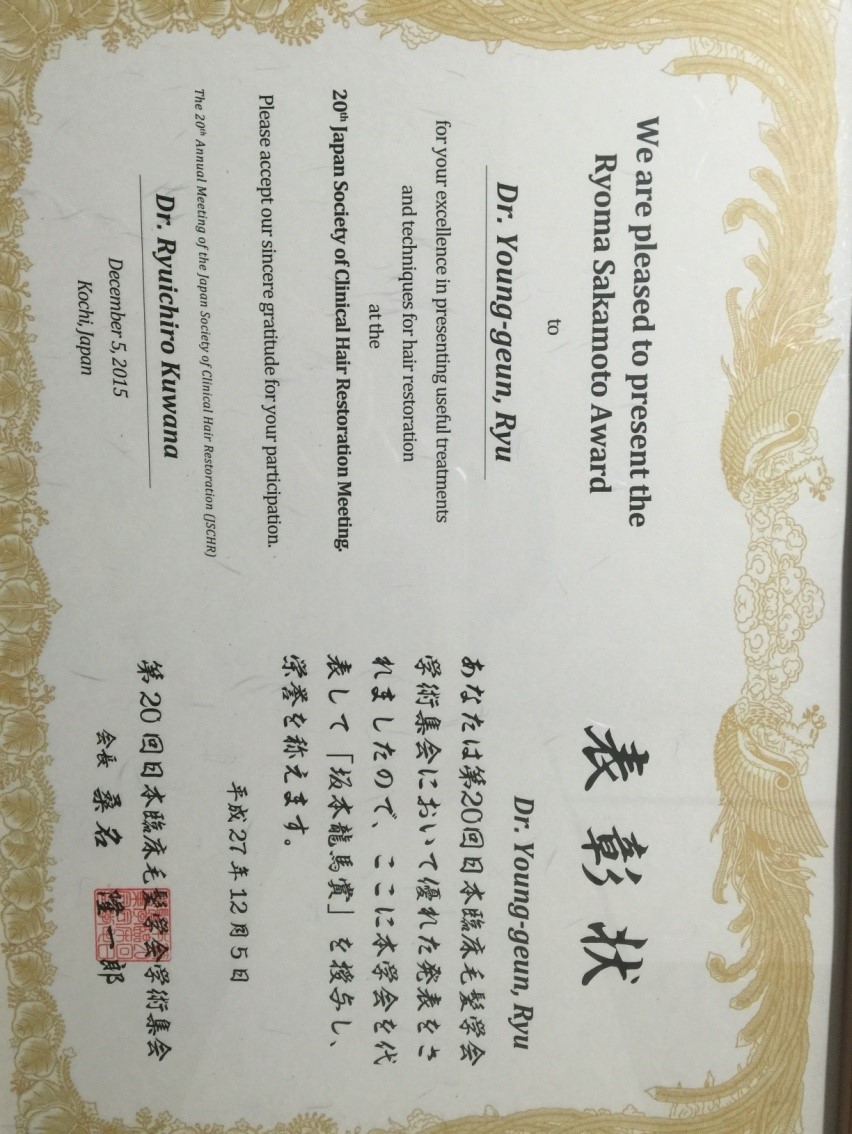 We are pleased to present the
Ryoma Sakamoto Award
to
Dr. Young-geun, Ryu
for your excellence in presenting useful treatments
and techniques for hair restoration
at the
20th Japan Society of Clinical Hair Restoration Meeting.
Please accept our sincere gratitude for your participation.
The 20th Annual Meeting of the Japan Society of Clinical Hair Restoration (JSCHR)
Dr. Ryuichiro Kuwana
December 5, 2015
Kochi, Japan
表彰状
Dr. Young-geun, Ryu
あなたは第20回日本臨床毛髪学会
学術集会において優れた発表をさ
れましたので、ここに本学会を代
表して「坂本龍馬賞」を授与し、
栄誉を称えます。
平成27年12月5日
第20回日本臨床毛髪学会学術集会
会長 桑名 隆一郎